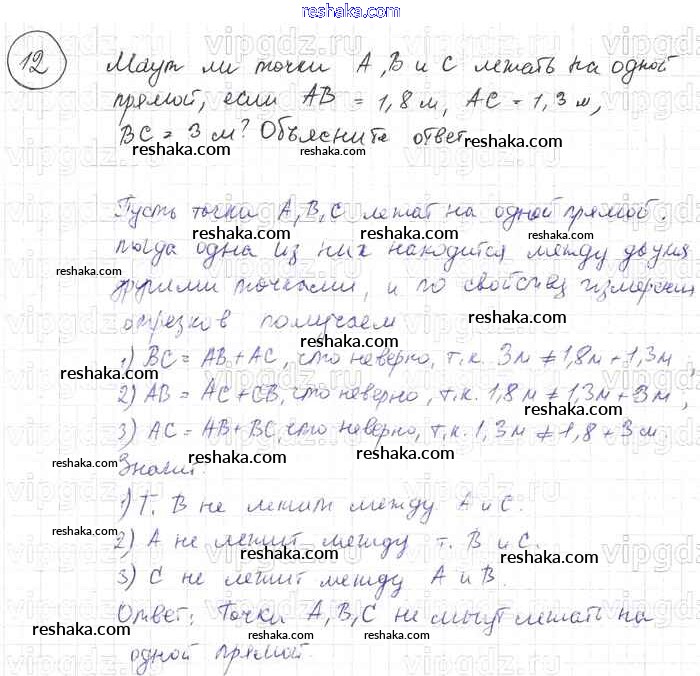 reshaka.com
12 Могут ли точки A, B и C лежать на одной
прямой, если AB = 1,8 м, AC = 1,3 м,
BC = 3 м? Объясните ответ
reshaka.com reshaka.com reshaka.com
Пусть точки A, B, C лежат на одной прямой.
reshaka.com reshaka.com
тогда одна из них находится между двумя
reshaka.com
другими точками, и по свойству измерения
отрезков получаем
reshaka.com
1) BC = AB + AC, что неверно, т.к. 3м ≠ 1,8м + 1,3м,
reshaka.com
2) AB = AC + CB, что неверно, т.к. 1,8 м ≠ 1,3м + 3м,
reshaka.com
3) AC = AB + BC, что неверно, т.к. 1,3м ≠ 1,8 + 3м.
reshaka.com reshaka.com
Значит
1) Т. B не лежит между A и C.
reshaka.com
2) A не лежит между т. B и C.
reshaka.com reshaka.com
3) C не лежит между A и B.
reshaka.com
Ответ: Точки A, B, C не могут лежать на
reshaka.com reshaka.com reshaka.com
одной прямой.